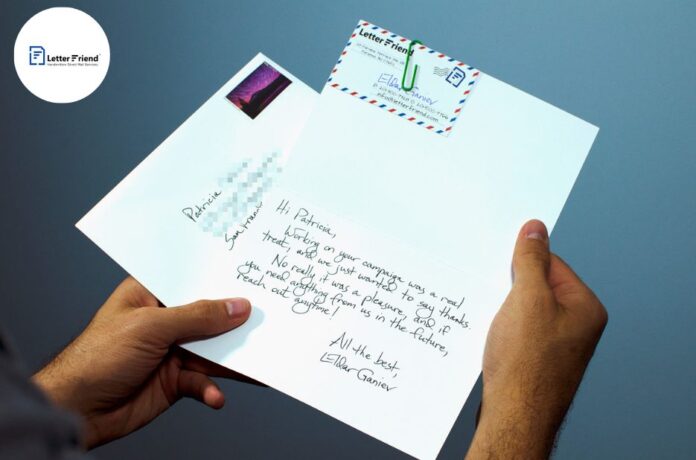 LetterFriend
Handwritten Direct Mail Services
LetterFriend
Eldar Ganiev
info@letterfriend.com
Patricia
San Franci
Hi Patricia,
Working on your campaign was a real
treat, and we just wanted to say thanks.
No really it was a pleasure, and if
you need anything from us in the future,
reach out anytime!
All the best,
Eldar Ganiev